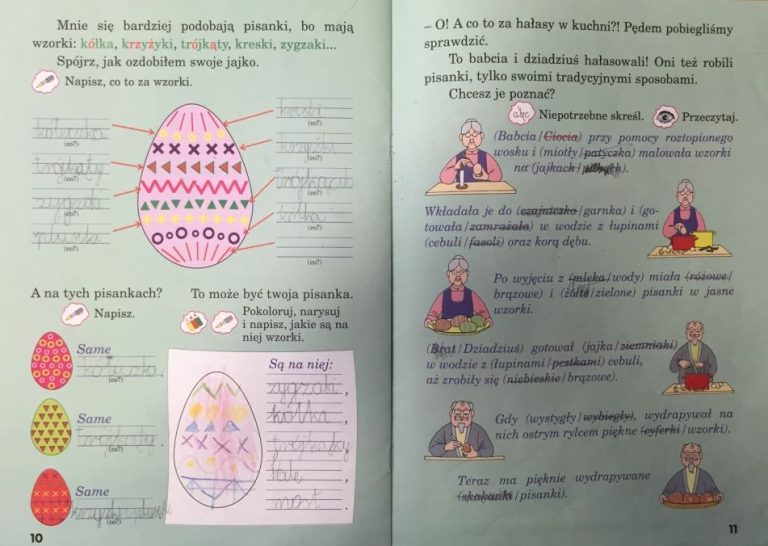 Mnie się bardziej podobają pisanki, bo mają
wzorki: kółka, krzyżyki, trójkąty, kreski, zygzaki...
Spójrz, jak ozdobiłem swoje jajko.
Napisz, co to za wzorki.
kółeczka
(co?)
trójkąty
(co?)
zygzaki
(co?)
(co?)
kreski
(co?)
krzyżyki
(co?)
(co?)
kółka
(co?)
(co?)
A na tych pisankach?
Napisz.
Same
kółeczka.
(co?)
Same
trójkąty.
(co?)
Same
krzyżyki i
(co?)
To może być twoja pisanka.
Pokoloruj, narysuj
i napisz, jakie są na
niej wzorki.
Są na niej:
zygzaki,
kółka,
,
,
.
10
– O! A co to za hałasy w kuchni?! Pędem pobiegliśmy
sprawdzić.
To babcia i dziadziuś hałasowali! Oni też robili
pisanki, tylko swoimi tradycyjnymi sposobami.
Chcesz je poznać?
abc Niepotrzebne skreśl. Przeczytaj.
(Babcia/Ciocia) przy pomocy roztopionego
wosku i (miotły/patyczka) malowała wzorki
na (jajkach/).
Wkładała je do (czajniczka/garnka) i (go-
towała/zamrażała) w wodzie z łupinami
(cebuli/fasoli) oraz korą dębu.
Po wyjęciu z (mleka/wody) miała (różowe/
brązowe) i (żółte/zielone) pisanki w jasne
wzorki.
(Brat/Dziadziuś) gotował (jajka/ziemniaki)
w wodzie z (łupinami/pestkami) cebuli,
aż zrobiły się (niebieskie/brązowe).
Gdy (wystygły/wybiegły), wydrapywał na
nich ostrym rylcem piękne (cyferki/wzorki).
Teraz ma pięknie wydrapywane
(skakanki/pisanki).
11